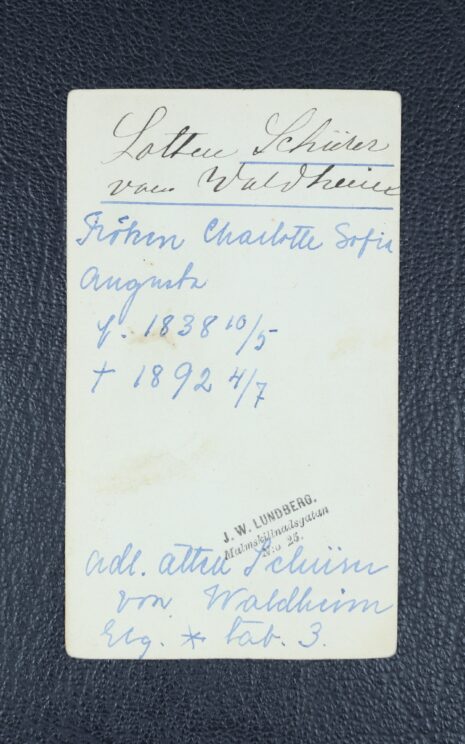 Lotten Schürer
von Waldheim
Fröken Charlotte Sofia
Augusta
f. 1838 10/5
† 1892 4/7
J. W. LUNDBERG.
Malmskillnadsgatan
N:o 25.
adl. ätten Schürer
von Waldheim
Elg. * tab. 3.